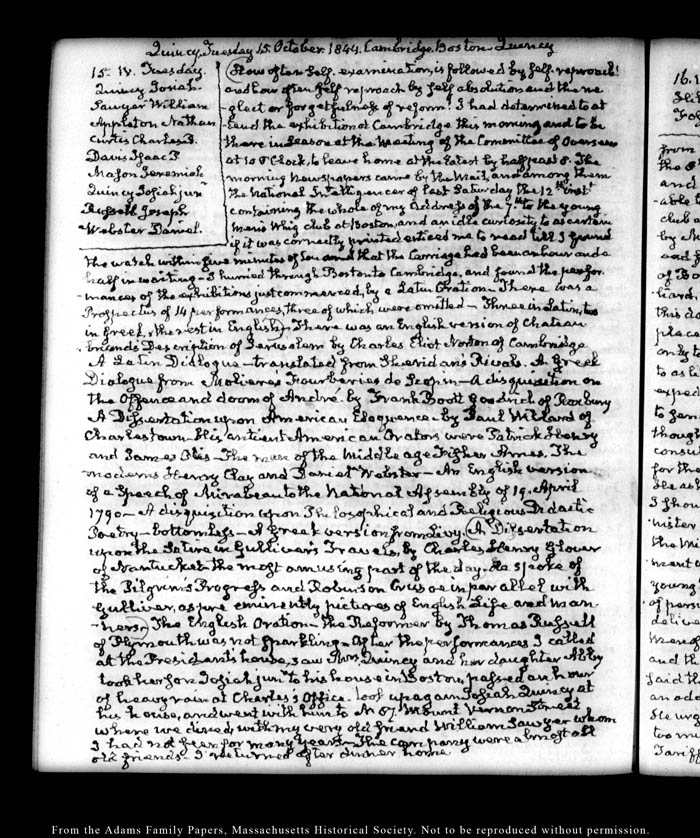 Quincy. Tuesday 15. October. 1844. Cambridge. Boston Quincy
15. IV. Tuesday.
Quincy Josiah.
Sawyer William
Appleton Nathan
Curtis Charles P.
Davis Isaac P.
Mason Jeremiah
Quincy Josiah junr
Russell Joseph
Webster Daniel.
How often self-examination, is followed by self-reproach!
and how often self reproach by self absolution and the ne
glect or forgetfulness of reform! I had determined to at
tend the exhibition at Cambridge this morning and to be
there in season at the Meeting of the Committee of Overseers
at 10 O'Clock, to leave home at the latest by half past 8. The
morning Newspapers came by the Mail, and among them
the National Intelligencer of last Saturday the 12th inst
containing the whole of my Address of the 7th to the young
men's Whig club at Boston, and an idle curiosity to ascertain
if it was correctly printed enticed me to read till I found
the watch within five minutes of ten and that the Carriage had been an hour and a
half in waiting - I hurried through Boston to Cambridge, and found the perfor
mances of the exhibitions just commenced, by a Latin Oration - There was a
Prospectus of 14 performances, three of which were omitted - Three in Latin, two
in Greek, the rest in English - There was an English version of Chateau
briand's Description of Jerusalem by Charles Eliot Norton of Cambridge
A Latin Dialogue - translated from Sheridan's Rivals. A Greek
Dialogue from Molieres Fourberies de Scapin - A disquisition on
the Offence and doom of Andre. by Frank Boott Goodrich of Roxbury
A Dissertation upon American Eloquence - by Paul Willard of
Charlestown - His antient American Orators were Patrick Henry
and James Otis - The man of the Middle age Fisher Ames. The
moderns Henry Clay and Daniel Webster - An English version
of a Speech of Mirabeau to the National Assembly of 19. April
1790 - A disquisition upon Philosophical and Religious Didactic
Poetry - bottomless - A Greek version from Livy. A Dissertation
upon the Satire in Gulliver's Travels, by Charles Henry Glover
of Nantucket the most amusing part of the day. He spoke of
the Pilgrim's Progress and Robinson Crusoe in parallel with
Gulliver, as pre eminently pictures of English Life and man
ners. The English Oration - the Reformer by Thomas Russell
of Plymouth was not sparkling - After the performances I called
at the President's house, saw Mrs Quincy and her daughter Abby
took her son Josiah junr to his house in Boston, passed an hour
of heavy rain at Charles's Office. took up again Josiah Quincy at
his house, and went with him to N. 57. Mount Vernon Street
where we dined, with my very old friend William Sawyer whom
I had not seen for many years - The company were almost all
old friends - I returned after dinner home
16.1
From the Adams Family Papers, Massachusetts Historical Society. Not to be reproduced without permission.